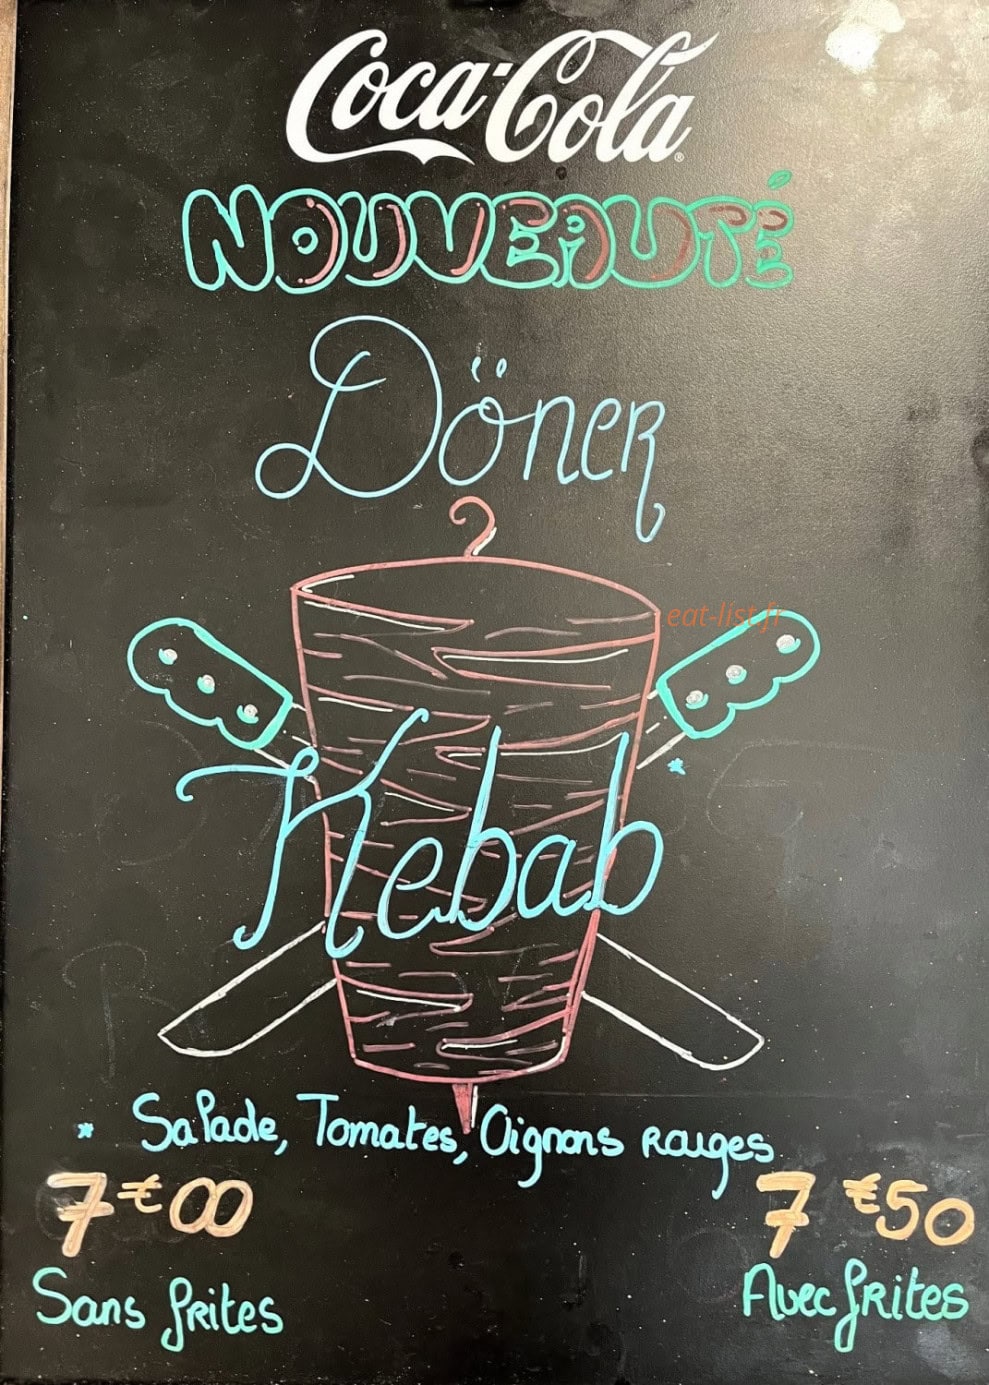 Coca-Cola®
NOUVEAUTÉ
Döner
eat-list.fr
Kebab *
* Salade, Tomates, Oignons rouges
7€00 7€50
Sans frites Avec frites